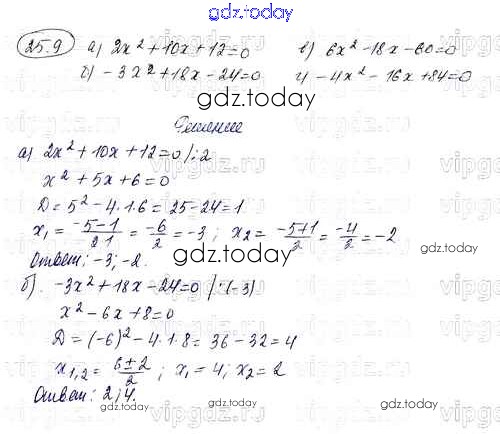 gdz.today
25.9 а) 2x² + 10x + 12 = 0 в) 6x² - 18x - 60 = 0
б) -3x² + 18x - 24 = 0 г) -4x² - 16x + 84 = 0
gdz.today
Решение
а) 2x² + 10x + 12 = 0 /:2
x² + 5x + 6 = 0
D = 5² - 4·1·6 = 25 - 24 = 1
x₁ = (-5-1)/(2·1) = -6/2 = -3; x₂ = (-5+1)/2 = -4/2 = -2
Ответ: -3; -2.
gdz.today
б). -3x² + 18x - 24 = 0 /:(-3)
x² - 6x + 8 = 0
D = (-6)² - 4·1·8 = 36 - 32 = 4
x₁,₂ = (6±2)/2; x₁ = 4; x₂ = 2
Ответ: 2; 4.
gdz.today
gdz.today
vipgdz.ru